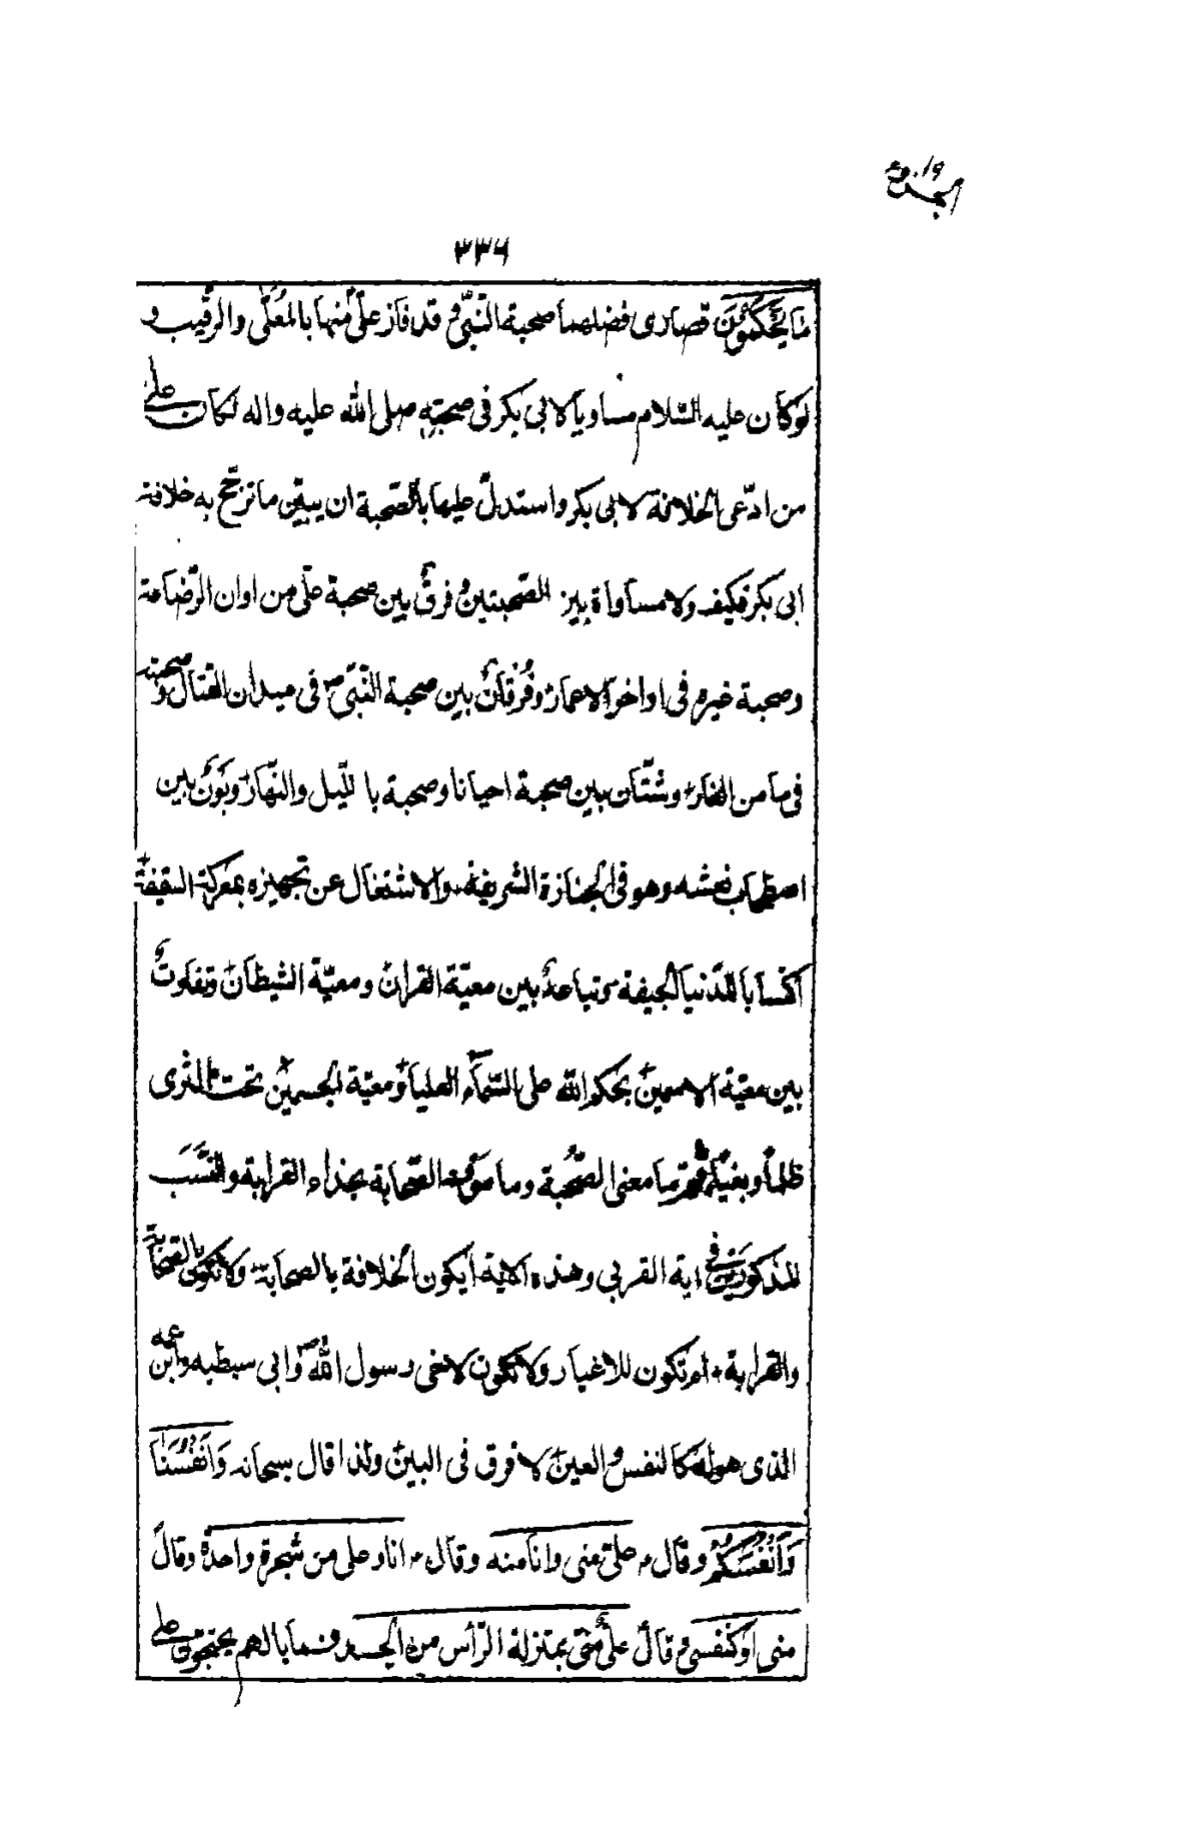 ٣٣٦
مَا يَحْكُمُوْنَ قصارى فضلهما صحبة النّبيّ و قد فاز علىّ منها بالمُعَلّٰى والرقيب و
لوكان عليه السّلام مساويا لابي بكر في صحبته صلى الله عليه واله لكان على
من ادّعى الخلافة لابي بكر واستدلّ عليها بالصّحبة ان يبيّن ما ترجّح به خلافة
ابي بكر فكيف ولا مساواة بين الصّحبتين و فرقٌ بين صحبة علّى من اوان الرّضاعة
وصحبة غيره في اواخر الاعمار وفُرْقانٌ بين صحبة النّبيّ ص في ميدان القتال وصحبته
في مامن الغار وشتّان بين صحبة احيانا وصحبة با للّيل والنّهار وبَوْنٌ بين
اصطحاب نعشه وهو في الجنازة الشريفة والاشتغال عن تجهيزه بمعركة السقيفة
اكتسابا للدّنيا الجيفة وتباعدٌ بين معيّة القران ومعيّة الشيطان وتفاوتٌ
بين معيّة بحكم الله على السّمآء العليا ومعيّة تحت الثرى
ظلماً وبغياً معنى الصُّحبة وما الصّحابة بحذاء القرابة والنَّسَب
المذكورين في اية القربى وهذه الاية أيكون الخلافة بالصحابة ولا تكون بالصّحابة
والقرابة ام تكون للاغيار ولا تكون لاخى رسول اللهص وابى سبطيه وابن عمه
الذى هو له كالنفس و العين لا فرق في البين ولذا قال سبحانه وَاَنْفُسَنَا
وَاَنْفُسَكُمْ وقال ع علىّ منى وانا منه وقال ع انا وعلى من شجرة واحدة وقال
منى او كنفسى و قال علىٌّ منّى بمنزلة الرّأس من الجسد فما بالهم يحتجون على